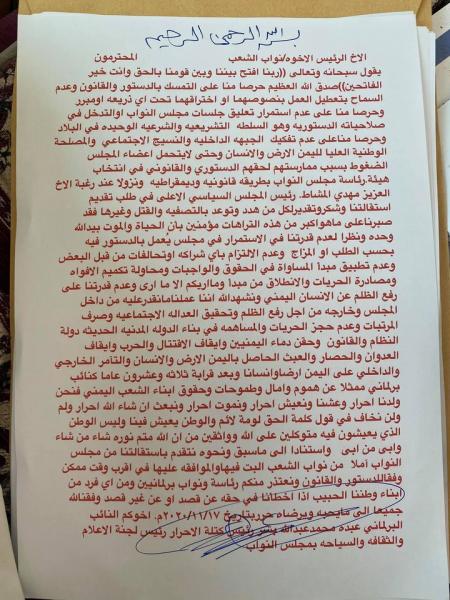 بسم الله الرحمن الرحيم
الاخ الرئيس الاخوه/نواب الشعب المحترمون
يقول سبحانه وتعالى ((ربنا افتح بيننا وبين قومنا بالحق وانت خير
الفاتحين))صدق الله العظيم حرصا منا على التمسك بالدستور والقانون وعدم
السماح بتعطيل العمل بنصوصهما او اختراقهما تحت اي ذريعه اومبرر
وحرصا منا على عدم استمرار تعليق جلسات مجلس النواب اوالتدخل في
صلاحياته الدستوريه وهو السلطه التشريعيه والشرعيه الوحيده في البلاد
وحرصا مناعلى عدم تفكيك الجبهه الداخليه والنسيج الاجتماعي والمصلحة
الوطنية العليا لليمن الارض والانسان وحتى لايتحمل اعضاء المجلس
الضغوط بسبب ممارستهم لحقهم الدستوري والقانوني في انتخاب
هيئة.رئاسة مجلس النواب بطريقه قانونيه وديمقراطيه ونزولا عند رغبة الاخ
العزيز مهدي المشاط. رئيس المجلس السياسي الاعلى في طلب تقديم
استقالتنا وشكروتقديرلكل من هدد وتوعد بالتصفيه والقتل وغيرها فقد
صبرناعلى ماهواكبر من هذه التراهات مؤمنين بان الحياة والموت بيدالله
وحده ونظرا لعدم قدرتنا في الاستمرار في مجلس يعمل بالدستور فيه
بحسب الطلب او المزاج وعدم الالتزام باي شراكه اوتحالفات من قبل البعض
وعدم تطبيق مبدأ المساواة في الحقوق والواجبات ومحاولة تكميم الافواه
ومصادرة الحريات والانطلاق من مبدأ وماأريكم الا ما ارى وعدم قدرتنا على
رفع الظلم عن الانسان اليمني ونشهدالله اننا عملنامانقدرعليه من داخل
المجلس وخارجه من اجل رفع الظلم وتحقيق العداله الاجتماعيه وصرف
المرتبات وعدم حجز الحريات والمساهمه في بناء الدوله المدنيه الحديثه دولة
النظام والقانون وحقن دماء اليمنيين وايقاف الاقتتال والحرب وايقاف
العدوان والحصار والعبث الحاصل باليمن الارض والانسان والتأمر الخارجي
والداخلي على اليمن ارضاوانسانا وبعد قرابة ثلاثه وعشرون عاما كنائب
برلماني ممثلا عن هموم وامال وطموحات وحقوق ابناء الشعب اليمني فنحن
ولدنا احرار وعشنا ونعيش احرار ونموت احرار ونبعث ان شاء الله احرار ولم
ولن نخاف في قول كلمة الحق لومة لائم والوطن يعيش فينا وليس الوطن
الذي يعيشون فيه متوكلين على الله وواثقين من ان الله متم نوره شاء من شاء
وابى من ابى واستنادا الى ماسبق ونحوه نتقدم باستقالتنا من مجلس
النواب أملا من نواب الشعب البت فيهاوالموافقه عليها في اقرب وقت ممكن
وفقاللدستور والقانون ونعتذر منكم رئاسة ونواب برلمانيين ومن اي فرد من
ابناء وطننا الحبيب اذا اخطأنا في حقه عن قصد او عن غير قصد وفقناالله
جميعا الى مايحبه ويرضاه حرربتاريخ ٢٠٢٠/١١/١٧م. اخوكم النائب
البرلماني عبده محمدعبدالله بشر رئيس كتلة الاحرار رئيس لجنة الاعلام
والثقافه والسياحه بمجلس النواب